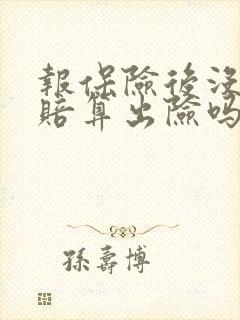 報保險後沒
賠算出險吗
孫壽博